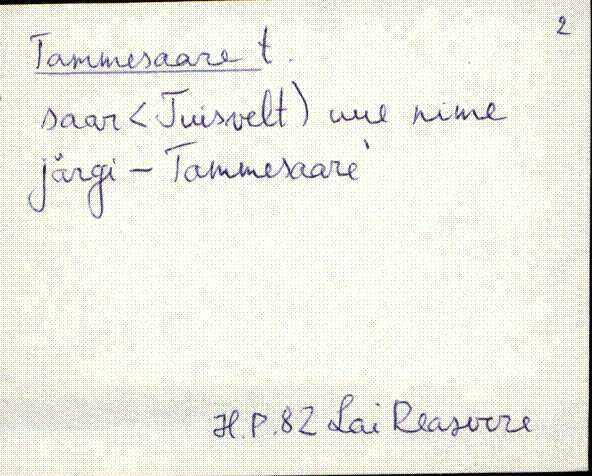 2
Tammesaare t.
saar < Tuisvelt) uue nime
järgi – Tammesaare
H.P. 82 Lai Reasvere